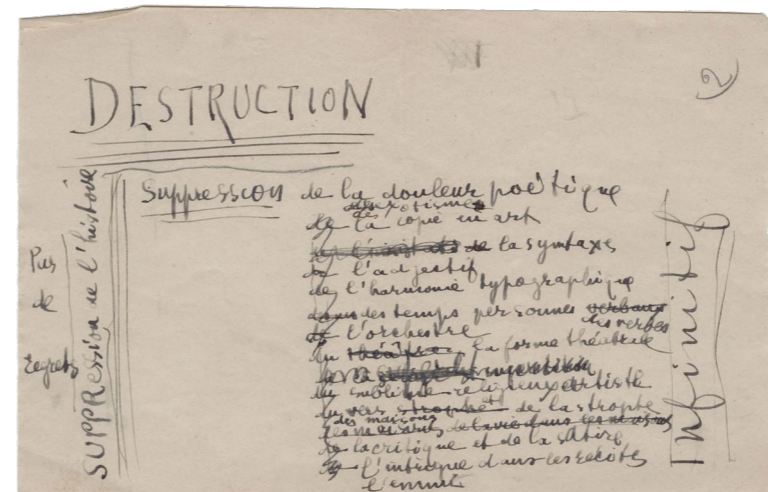 2
DESTRUCTION
SUPPRESSION de l'histoire
Pas
de
regrets
Suppression de la douleur poétique
des exotismes
de la copie en art
de la syntaxe
de l'adjectif
de l'harmonie typographique
des temps personnes verbaux
des verbes
de l'orchestre
du théâtre la forme théâtrale
du sublime religieux artiste
du vers strophe et de la strophe
des maisons
de la critique et de la satire
de l'intrigue dans les récits
l'ennui
Infinitif